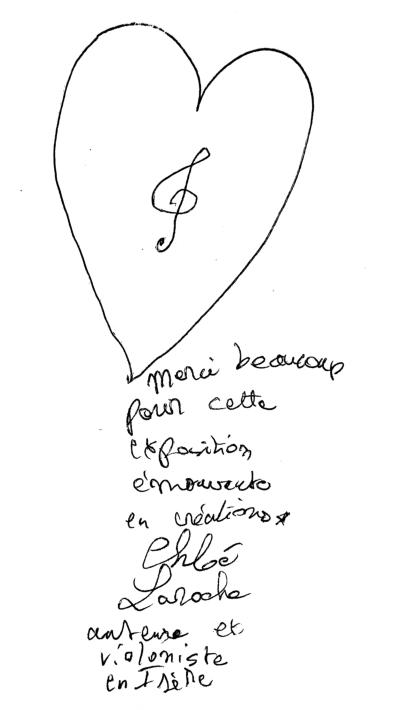 Merci beaucoup
pour cette
exposition
émouvante
en créations
Chloé
Laroche
auteure et
violoniste
en Isère